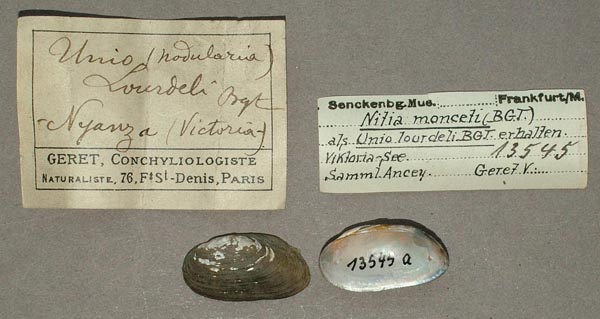 Unio (nodularia)
Lourdeli Bgt
-Nyanza (Victoria-)
GERET, CONCHYLIOLOGISTE
NATURALISTE, 76, Fg St-DENIS, PARIS
Senckenbg. Mus. Frankfurt/M.
Nitia monceti (BGT.)
als Unio lourdeli BGT. erhalten.
Viktoria-See. 13545
Samml. Ancey. Geret V.:
13545 a